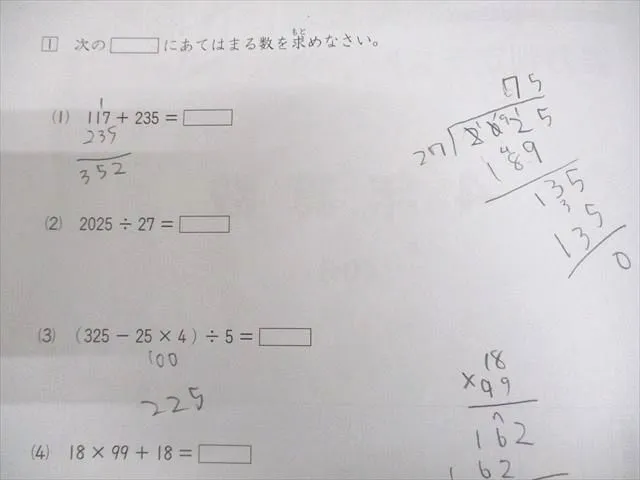 1 次の□にあてはまる数を求めなさい。
もと
(1) 117 + 235 = □
1
235
352
(2) 2025 ÷ 27 = □
(3) (325 − 25 × 4) ÷ 5 = □
100
225
(4) 18 × 99 + 18 = □
75
27 2025
189
135
135
0
18
× 99
162
162